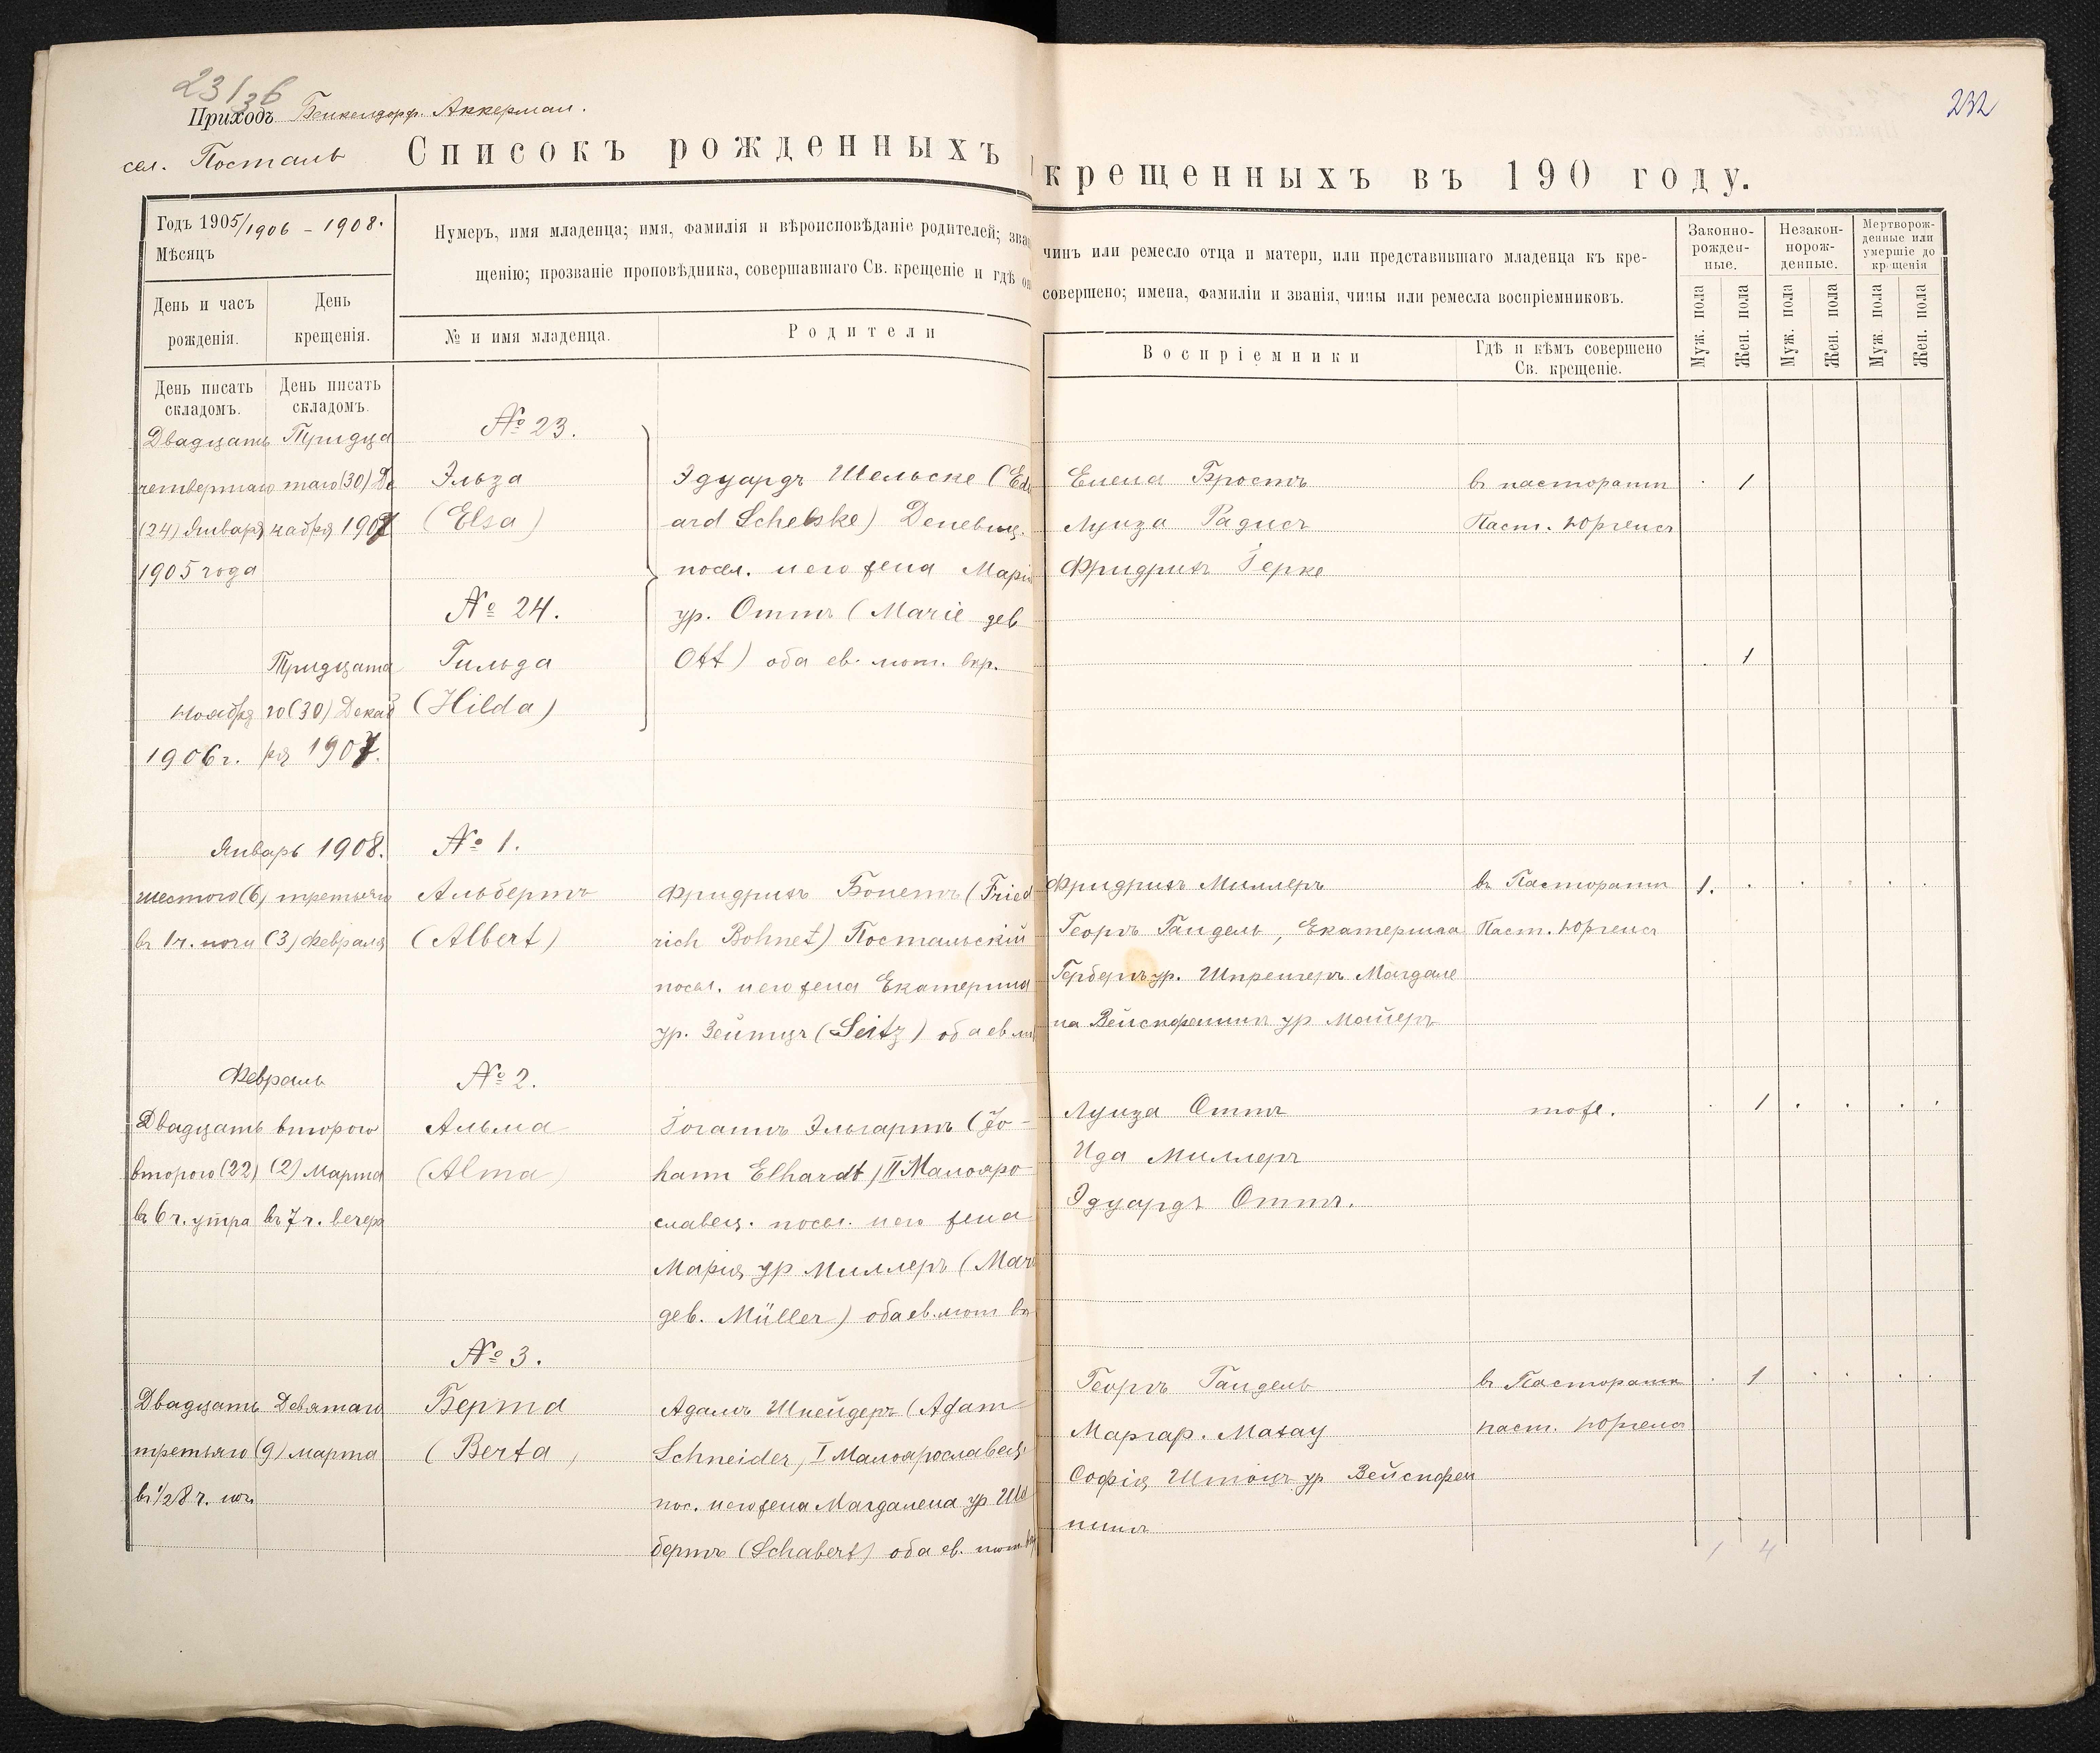 23/36
232
Приходъ Бенкендорф. Аккерман.
сел. Посталь
Списокъ рожденныхъ
крещенныхъ въ 190 году.
Годъ 1905/1906 - 1908.
Мѣсяцъ
Нумеръ, имя младенца; имя, фамилія и вѣроисповѣданіе родителей; зва
щенію; прозваніе проповѣдника, совершавшаго Св. крещеніе и гдѣ он
чинъ или ремесло отца и матери, или представившаго младенца къ кре-
совершено; имена, фамиліи и званія, чины или ремесла воспріемниковъ.
Законно-
рожден-
ные.
Незакон-
норож-
денные.
Мертворож-
денные или
умершіе до
крещенія
День и часъ
рожденія.
День
крещенія.
№ и имя младенца.
Родители
Воспріемники
Гдѣ и кѣмъ совершено
Св. крещеніе.
Муж. пола
Жен. пола
Муж. пола
Жен. пола
Муж. пола
Жен. пола
День писать
складомъ.
День писать
складомъ.
Двадцать
четвертаго
(24) Января
1905 года
Тридца
таго (30) Де
кабря 1907
№ 23.
Эльза
(Elsa)
Эдуардъ Шельске (Edu
ard Schelske) Деневиц.
посел. и его жена Марія
ур. Оттъ (Marie дев
Ott) оба ев. лют. вѣр.
Елена Бростъ
Луиза Радисъ
Фридрихъ Герке
въ пасторатѣ
Паст. Юргенсъ
1
ноября
1906 г.
Тридцата
го (30) Декаб
ря 1907.
№ 24.
Гильда
(Hilda)
1
Январь 1908.
№ 1.
шестого (6)
въ 1 ч. ночи
третьяго
(3) Февраля
Альбертъ
(Albert)
Фридрихъ Бонетъ (Fried
rich Bohnet) Постальскій
посел. и его жена Екатерина
ур. Зейтцъ (Seitz) оба ев лю
Фридрихъ Миллеръ
Георгъ Гандель, Екатерина
Герберъ ур. Шпренгеръ Магдале
на Вейспфеннигъ ур Майеръ
въ Пасторатѣ
Паст. Юргенсъ
1.
Февраль
№ 2.
Двадцать
второго (22)
въ 6 ч. утра
второго
(2) Марта
въ 7 ч. вечера
Альма
(Alma)
Іоганнъ Эльгартъ (Jo-
hann Elhardt) II Малояро-
славец. посел. и его жена
Марія ур Миллеръ (Mari
дев. Müller) оба ев. лют вѣ
Луиза Оттъ
Ида Миллеръ
Эдуардъ Оттъ.
тоже.
1
№ 3.
Двадцать
третьяго
въ ½ 8 ч. ноч
Девятаго
(9) марта
Берта
(Berta)
Адамъ Шнейдеръ (Adam
Schneider, I Малоярославец.
пос. и его жена Магдалена ур Ша
бертъ (Schabert) оба ев. лют. вѣр
Георгъ Гандель
Маргар. Матау
Софія Штоцъ ур Вейспфен
нигъ
въ Пасторатѣ
паст. Юргенсъ
1
1 4